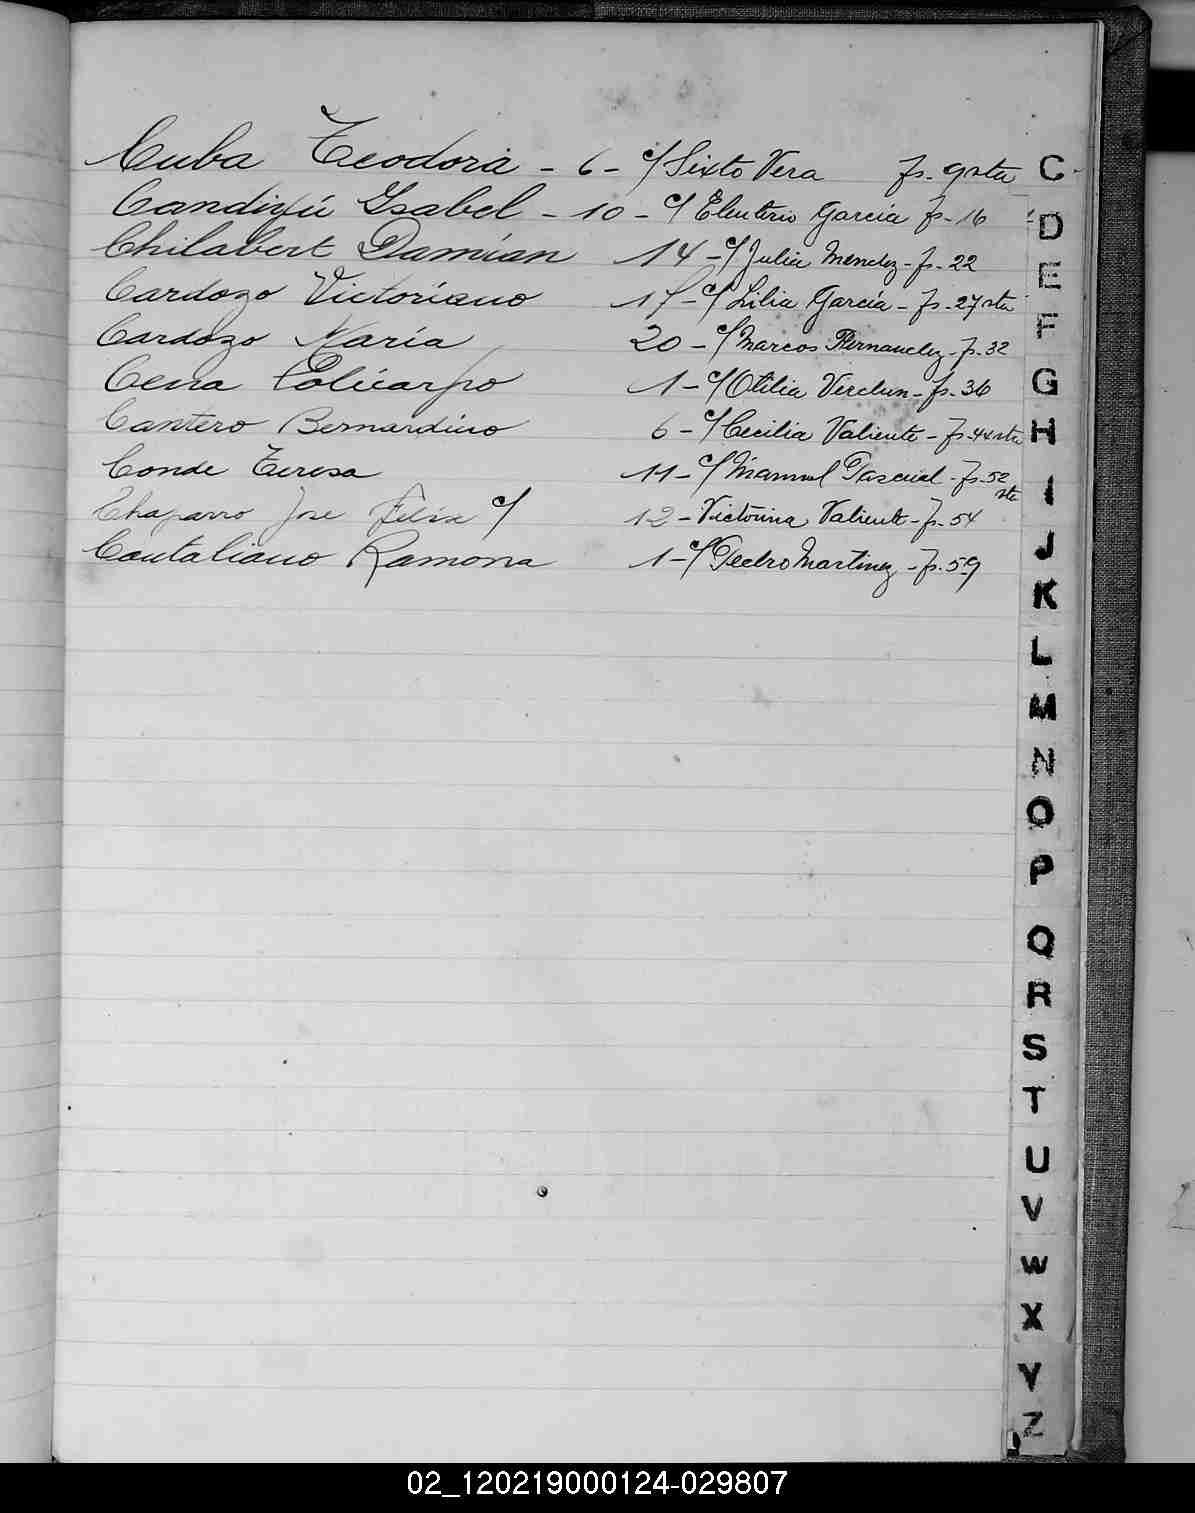 Cuba Teodora - 6 - c/ Sixto Vera fs. 9 vta C
Isabel - 10 - c/ Eleuterio García fs. 16 D
Chilabert Damían 14 - c/ Julia Mendez - fs. 22 E
Cardozo Victoriano 17 - c/ Lilia García - fs. 27 vta F
Cardozo María 20 - c/ Marcos Fernandez - fs. 32
Cena Policarpo 1 - c/ Otilia - fs. 36 G
Cantero Bernardino 6 - c/ Cecilia Valiente - fs. 44 vta H
Conde Teresa 11 - c/ Manuel Pascual - fs. 52 vta I
Chaparro Jose Felix c/ 12 - Victorina Valiente - fs. 54
Cantaliano Ramona 1 - c/ Pedro Martinez - fs. 59 J
K
L
M
N
O
P
Q
R
S
T
U
V
W
X
Y
Z
02_120219000124-029807